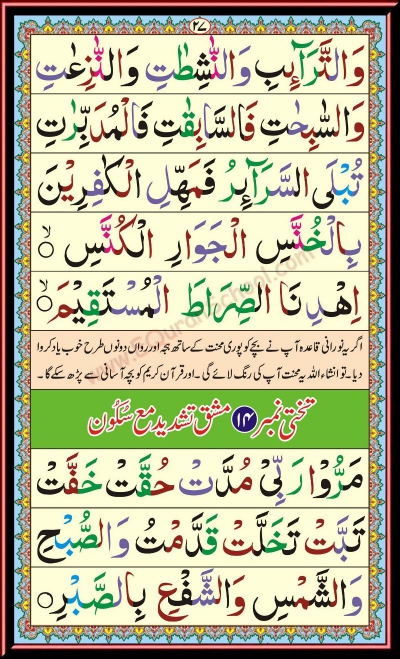 ٢٧
وَالتَّرَآئِبِ وَالنّٰشِطٰتِ وَالنّٰزِعٰتِ
وَالسّٰبِحٰتِ فَالسّٰبِقٰتِ فَالْمُدَبِّرٰتِ
تُبْلَى السَّرَآئِرُ فَمَهِّلِ الْكٰفِرِيْنَ
بِالْخُنَّسِ الْجَوَارِ الْكُنَّسِ ۙ
اِهْدِنَا الصِّرَاطَ الْمُسْتَقِيْمَ ۙ
اگر یہ نورانی قاعدہ آپ نے بچے کو پوری محنت کے ساتھ ہجہ اور رواں دونوں طرح خوب یاد کروا
دیا۔ تو انشاء اللہ یہ محنت آپ کی رنگ لائے گی۔ اور قرآن کریم کو بچہ آسانی سے پڑھ سکے گا۔
تختی نمبر ۱۴ مشق تشدید مع سکون
مَرُّوْا رَبِّيْ مُدَّتْ حُقَّتْ خَفَّتْ
تَبَّتْ تَخَلَّتْ قَدَّمْتُ وَالصُّبْحِ
وَالشَّمْسِ وَالشَّفْعِ بِالصَّبْرِ ○